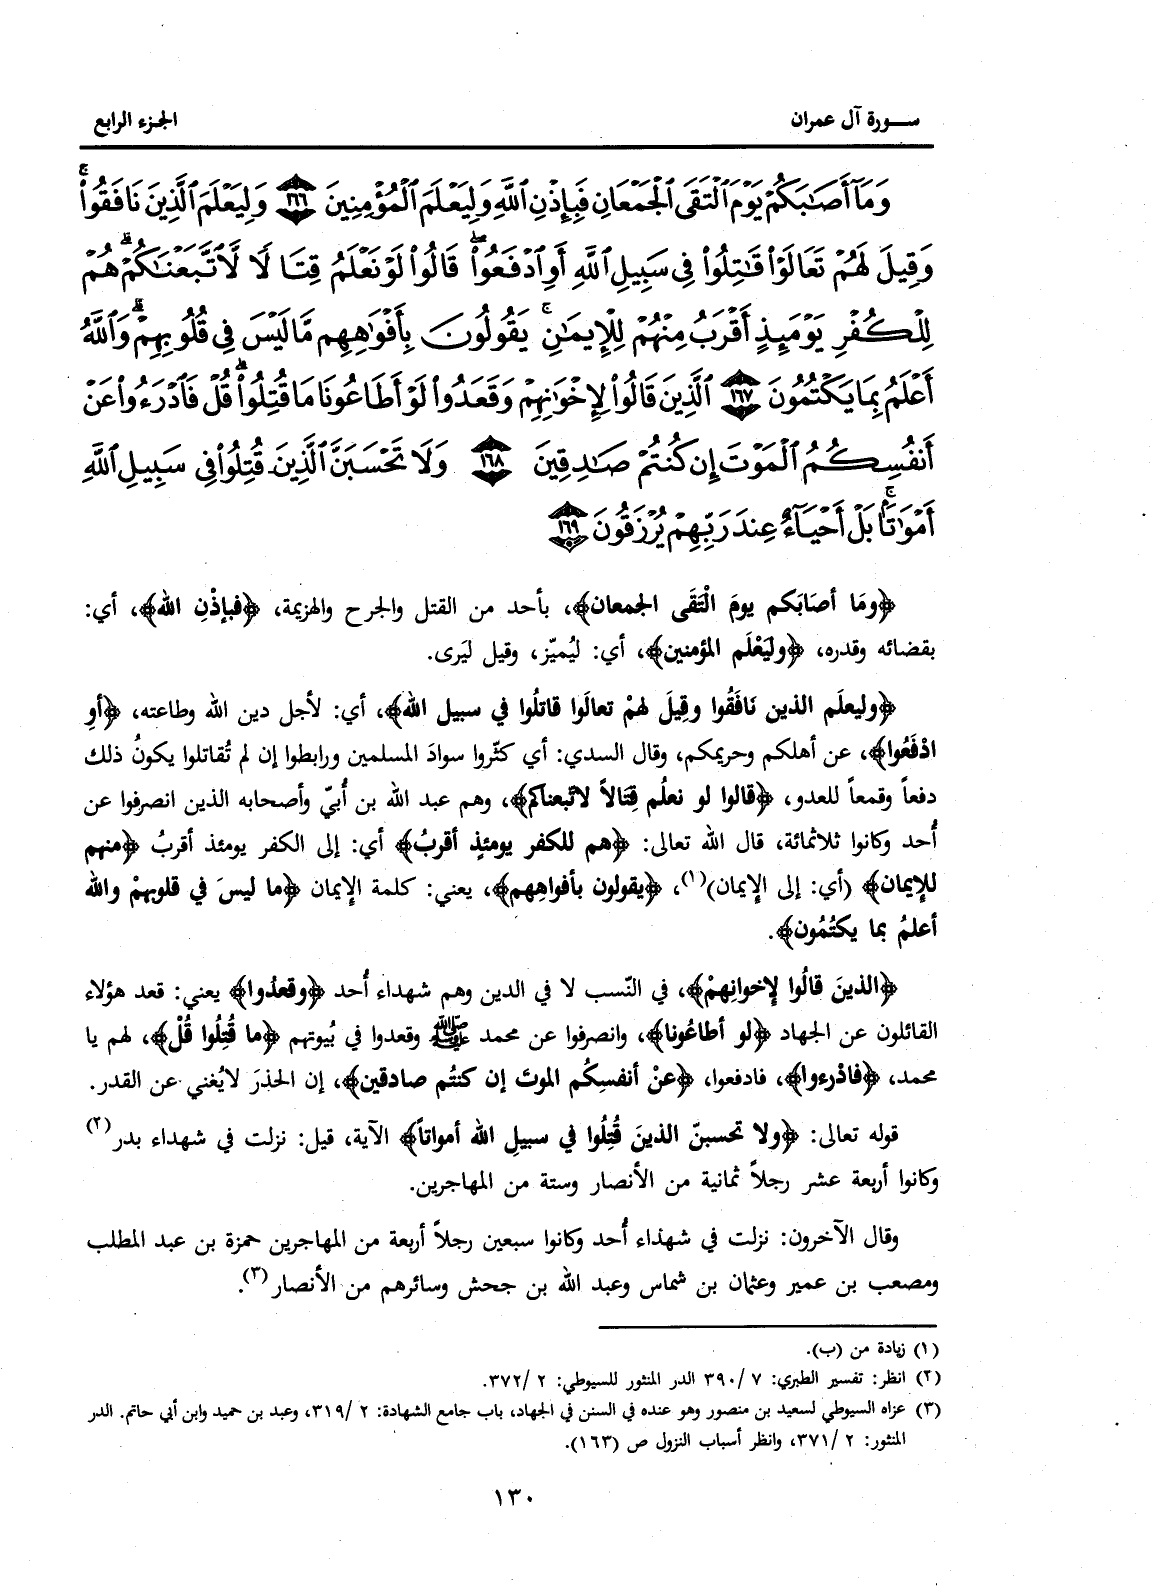 سورة آل عمران
الجزء الرابع
وَمَآ أَصَٰبَكُمْ يَوْمَ ٱلْتَقَى ٱلْجَمْعَانِ فَبِإِذْنِ ٱللَّهِ وَلِيَعْلَمَ ٱلْمُؤْمِنِينَ ﴿١٦٦﴾ وَلِيَعْلَمَ ٱلَّذِينَ نَافَقُوا۟ ۚ
وَقِيلَ لَهُمْ تَعَالَوْا۟ قَٰتِلُوا۟ فِى سَبِيلِ ٱللَّهِ أَوِ ٱدْفَعُوا۟ ۖ قَالُوا۟ لَوْ نَعْلَمُ قِتَا لًا لَّٱتَّبَعْنَٰكُمْ ۗ هُمْ
لِلْكُفْرِ يَوْمَئِذٍ أَقْرَبُ مِنْهُمْ لِلْإِيمَٰنِ ۚ يَقُولُونَ بِأَفْوَٰهِهِم مَّا لَيْسَ فِى قُلُوبِهِمْ ۗ وَٱللَّهُ
أَعْلَمُ بِمَا يَكْتُمُونَ ﴿١٦٧﴾ ٱلَّذِينَ قَالُوا۟ لِإِخْوَٰنِهِمْ وَقَعَدُوا۟ لَوْ أَطَاعُونَا مَا قُتِلُوا۟ ۗ قُلْ فَٱدْرَءُوا۟ عَنْ
أَنفُسِكُمُ ٱلْمَوْتَ إِن كُنتُمْ صَٰدِقِينَ ﴿١٦٨﴾ وَلَا تَحْسَبَنَّ ٱلَّذِينَ قُتِلُوا۟ فِى سَبِيلِ ٱللَّهِ
أَمْوَٰتًۢا ۚ بَلْ أَحْيَآءٌ عِندَ رَبِّهِمْ يُرْزَقُونَ ﴿١٦٩﴾
﴿ومَا أصَابَكم يومَ الْتَقَى الجمعان﴾، بأحد من القتل والجرح والهزيمة، ﴿فبإذْنِ الله﴾، أي:
بقضائه وقدره، ﴿وليَعْلَم المؤمنين﴾، أي: ليُميّز، وقيل ليَرى.
﴿وليعلَم الذين نَافَقُوا وقِيلَ لهمْ تعالَوا قاتلُوا في سبيل الله﴾، أي: لأجل دين الله وطاعته، ﴿أوِ
ادْفَعُوا﴾، عن أهلكم وحريمكم، وقال السدي: أي كثّروا سوادَ المسلمين ورابطوا إن لم تُقاتلوا يكونُ ذلك
دفعاً وقمعاً للعدو، ﴿قالوا لو نعلُم قِتَالاً لاتّبعناكم﴾، وهم عبد الله بن أُبيّ وأصحابه الذين انصرفوا عن
أُحد وكانوا ثلاثمائة، قال الله تعالى: ﴿هم للكفر يومئذٍ أقربُ﴾ أي: إلى الكفر يومئذ أقربُ ﴿منهم
للإيمان﴾ (أي: إلى الإيمان)(١)، ﴿يقولون بأفواهِهم﴾، يعني: كلمة الإيمان ﴿ما ليسَ في قلوبهمْ والله
أعلمُ بما يكتُمُون﴾.
﴿الذينَ قالُوا لإخوانِهمْ﴾، في النّسب لا في الدين وهم شهداء أحد ﴿وقعدُوا﴾ يعني: قعد هؤلاء
القائلون عن الجهاد ﴿لو أطاعُونا﴾، وانصرفوا عن محمد ﷺ وقعدوا في بُيوتهم ﴿ما قُتِلُوا قُلْ﴾، لهم يا
محمد، ﴿فادْرءوا﴾، فادفعوا، ﴿عنْ أنفسِكُم الموتَ إن كنتُم صادقين﴾، إن الحذرَ لايُغني عن القدر.
قوله تعالى: ﴿ولا تحسبنّ الذينَ قُتِلُوا في سبيلِ الله أمواتاً﴾ الآية، قيل: نزلت في شهداء بدر(٢)
وكانوا أربعة عشر رجلاً ثمانية من الأنصار وستة من المهاجرين.
وقال الآخرون: نزلت في شهداء أُحد وكانوا سبعين رجلاً أربعة من المهاجرين حمزة بن عبد المطلب
ومصعب بن عمير وعثمان بن شماس وعبد الله بن جحش وسائرهم من الأنصار(٣).
(١) زيادة من (ب).
(٢) انظر: تفسير الطبري: ٧ /٣٩٠ الدر المنثور للسيوطي: ٢ /٣٧٢.
(٣) عزاه السيوطي لسعيد بن منصور وهو عنده في السنن في الجهاد، باب جامع الشهادة: ٢ /٣١٩، وعبد بن حميد وابن أبي حاتم. الدر
المنثور: ٢ /٣٧١، وانظر أسباب النزول ص (١٦٣).
١٣٠